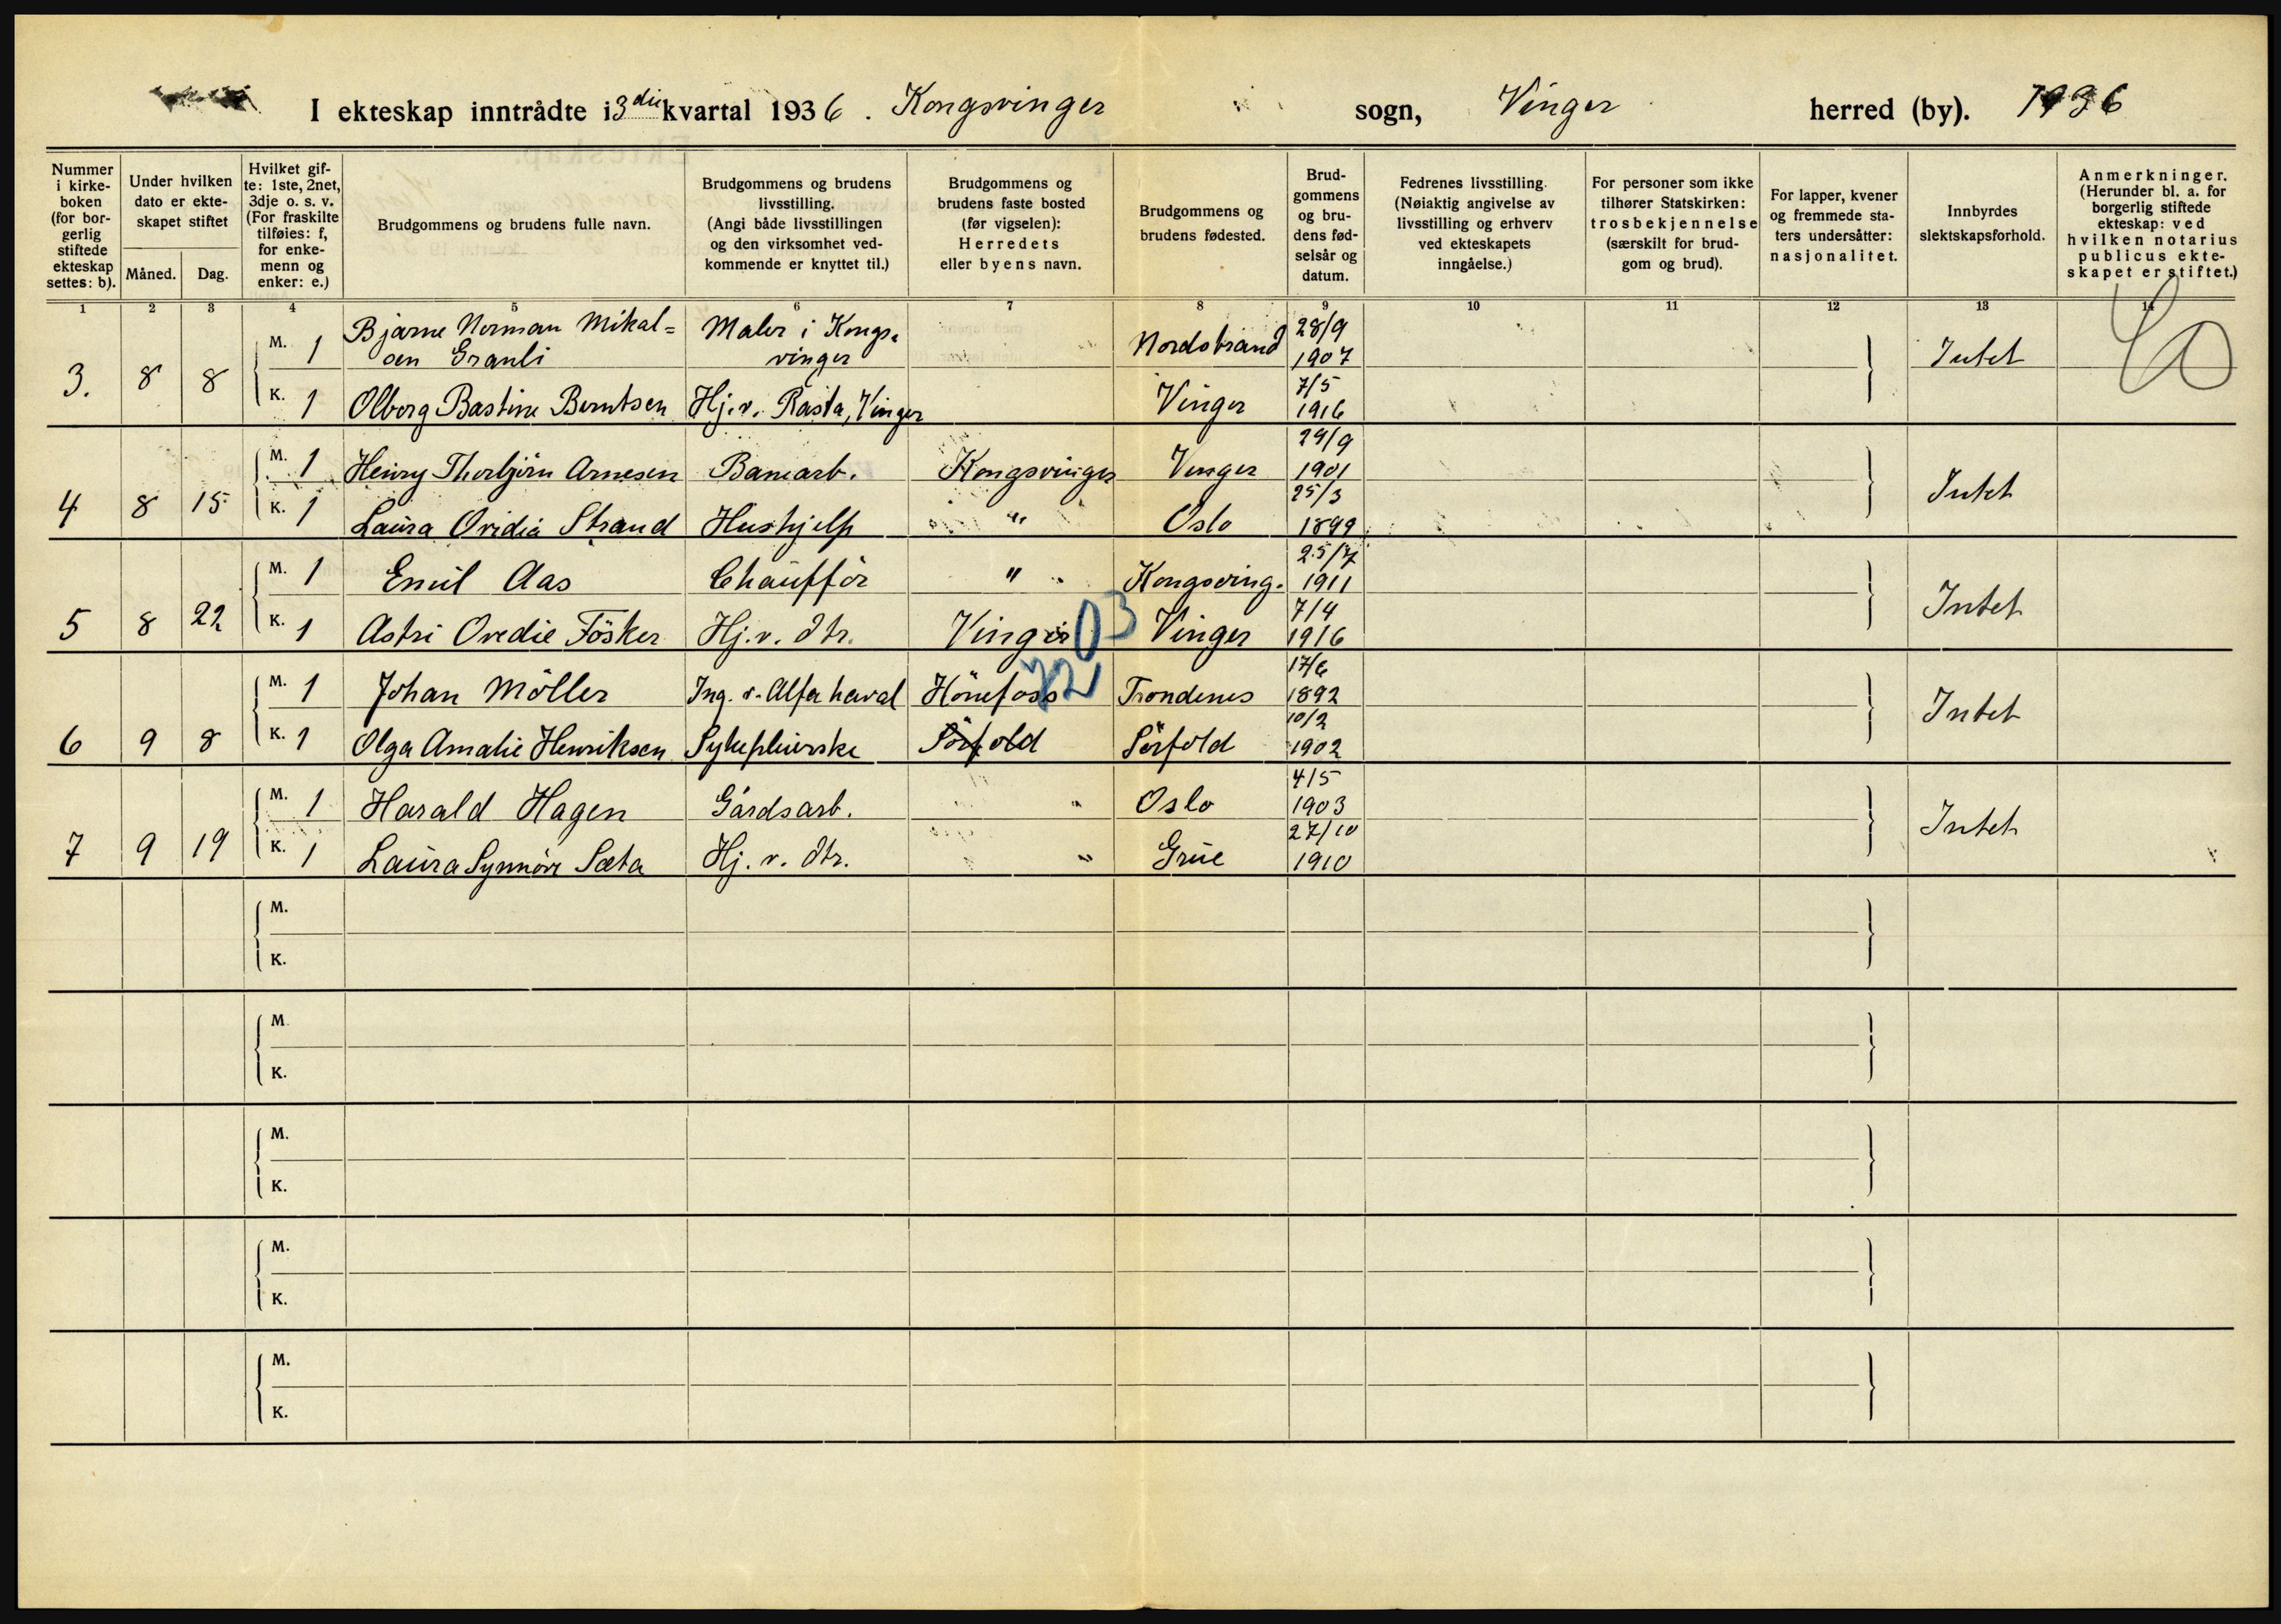 I ekteskap inntrådte i 3die kvartal 1936. Kongsvinger sogn, Vinger herred (by). 1936
Nummer i kirke-boken (for bor-gerlig stiftede ekteskap settes: b).
Under hvilken dato er ekte-skapet stiftet
Måned. Dag.
Hvilket gif-te: 1ste, 2net, 3dje o. s. v. (For fraskilte tilføies: f, for enke-menn og enker: e.)
Brudgommens og brudens fulle navn.
Brudgommens og brudens livsstilling. (Angi både livsstillingen og den virksomhet ved-kommende er knyttet til.)
Brudgommens og brudens faste bosted (før vigselen): Herredets eller byens navn.
Brudgommens og brudens fødested.
Brud-gommens og bru-dens fød-selsår og datum.
Fedrenes livsstilling. (Nøiaktig angivelse av livsstilling og erhverv ved ekteskapets inngåelse.)
For personer som ikke tilhører Statskirken: trosbekjennelse (særskilt for brud-gom og brud).
For lapper, kvener og fremmede sta-ters undersåtter: nasjonalitet.
Innbyrdes slektskapsforhold.
Anmerkninger. (Herunder bl. a. for borgerlig stiftede ekteskap: ved hvilken notarius publicus ekte-skapet er stiftet.)
1 2 3 4 5 6 7 8 9 10 11 12 13 14
3. 8 8 M. 1 Bjarne Norman Mikal=sen Granli Maler i Kongs-vinger Nordstrand 28/9 1907 Intet
K. 1 Olborg Bastine Berntsen Hj.v. Rasta, Vinger Vinger 7/5 1916
4 8 15 M. 1 Henry Thorbjörn Arnesen Banearb. Kongsvinger Vinger 29/9 1901 Intet
K. 1 Laura Ovidia Strand Hushjelp " Oslo 25/3 1899
5 8 22 M. 1 Emil Aas Chaufför " Kongsving. 25/7 1911 Intet
K. 1 Astri Ovedie Fösker Hj.v. dtr. Vinger 03 Vinger 7/4 1916
6 9 8 M. 1 Johan Möller Ing. v. Alfa Laval Hönefoss Trondenes 17/6 1892 Intet
K. 1 Olga Amalie Henriksen Sykepleierske Sörfold Sörfold 10/2 1902
7 9 19 M. 1 Harald Hagen Gårdsarb. " Oslo 4/5 1903 Intet
K. 1 Laura Synnöve Sæta Hj. v. dtr. " Grue 27/10 1910
M.
K.
M.
K.
M.
K.
M.
K.
M.
K.